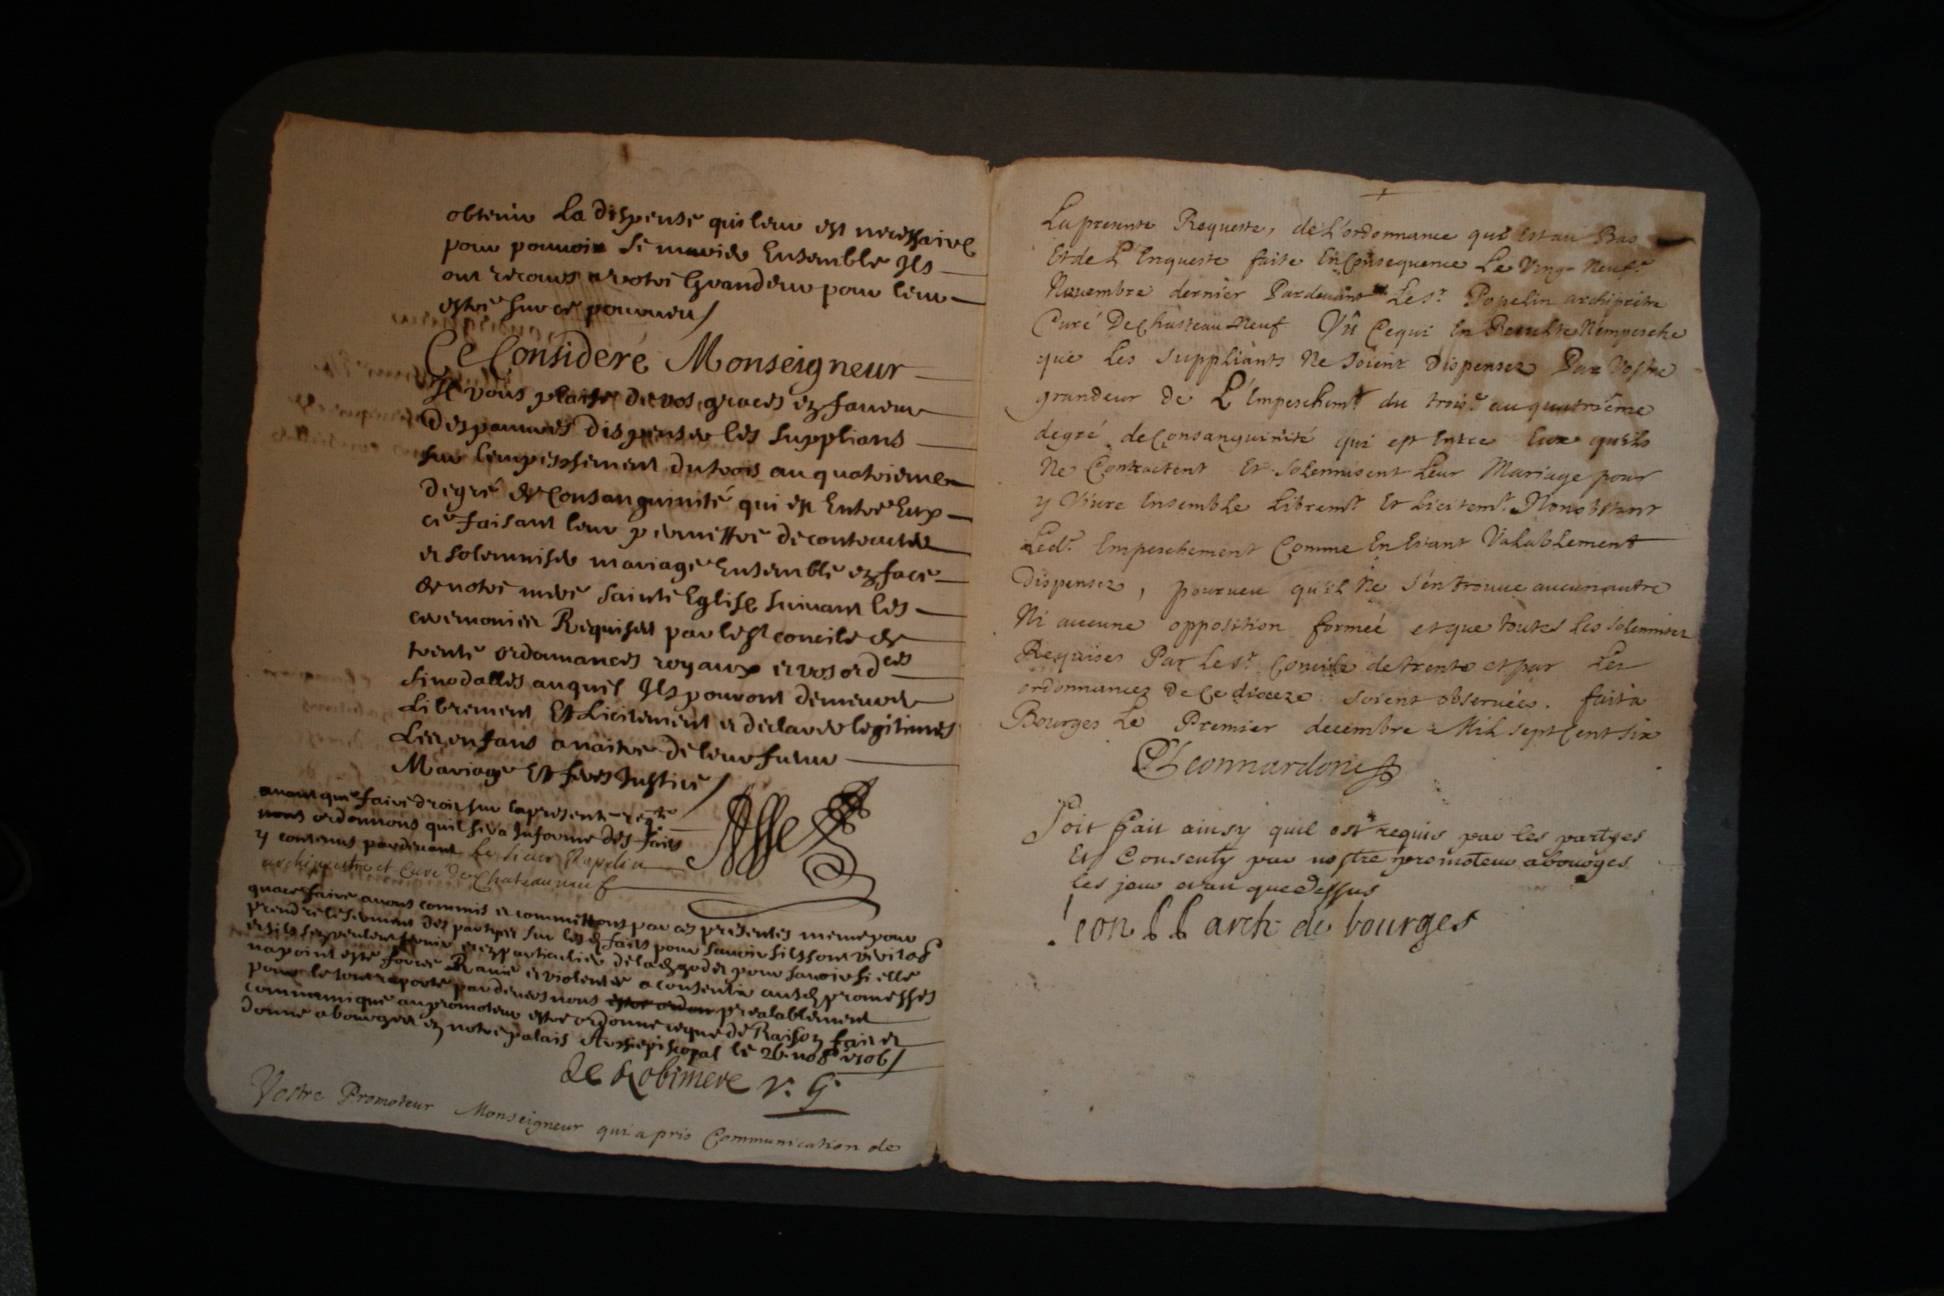 obtenir La dispense qui leur est necessaire
pour pouvoir se marier Ensemble Ils
ont recours a votre Grandeur pour leur
estre sur ce pourveu /
Ce Consideré Monseigneur
Il vous plaise de vos graces ez faveur
Des pauvres dispenser les supplians
sur l'empeschement du trois au quatrieme
degré de Consanguinité qui est Entre Eux
ce faisant leur permettre de contracter
et solemniser mariage Ensemble ez face
de notre mere sainte Eglise suivant les
ceremonies Requises par le st concile de
trente ordonnances royaux et vos ordces
sinodalles auquel Ils pouront demeurer
Librement Et Licitement et declarer legitimes
Les enfans a naitre de leur futur
Mariage Et feres Justice /
avant que faire droit sur la presente reqte
nous ordonnons quil sera Informé des faits
y contenus pardevant Le sieur Popelin
archiprestre et Curé de Chateauneuf
quace faire avons commis et commettons par ces presentes meme pour
prendre le serment des parties sur lesd faits pour savoir sils sont veritab
et sils sy veulent tenir et ez particulier de lad godet pour savoir si elle
na point esté forcée Ravie et violentée a consentir ausd promesses
pour le tout raporté pardevers nous prealablement
communiqué au promoteur estre ordonné ce que de Raison fait et
donné a bourges ez notre palais Archiepiscopal le 26 no8bre 1706 /
De Robimere V. G
Vostre Promoteur Monseigneur qui a pris Communication de
La presente Requeste, de L'ordonnance qui est au Bas
Et de L'Enqueste faite En Consequence Le Vingt Neufe
Novembre dernier Pardevant Le Sr Popelin archiprêtre
Curé De Chasteau Neuf Vû Ce qui En Resulte N'empesche
que Les suppliants Ne soient Dispensez Par Vostre
grandeur de L'Empeschemt du troise au quatriême
degré de Consanguinité qui est Entre Eux quils
Ne Contractent Et Solemnisent Leur Mariage pour
y Vivre Ensemble Libremt Et Licitemt Nonobstant
Ledt Empeschement Comme En Estant Valablement
Dispensez, pourveu qu'il Ne s'en trouve aucun autre
Ni aucune opposition formée et que toutes Les solemnitez
Requises Par Le St Concile de trente et par Les
ordonnances De Ce dioceze soient observées. fait a
Bourges Le Premier decembre Mil sept Cent Six
Soit fait ainsy quil est requis par les parties
Et Consenty par nostre promoteur a bourges
les jour et an que dessus
leon arch de bourges